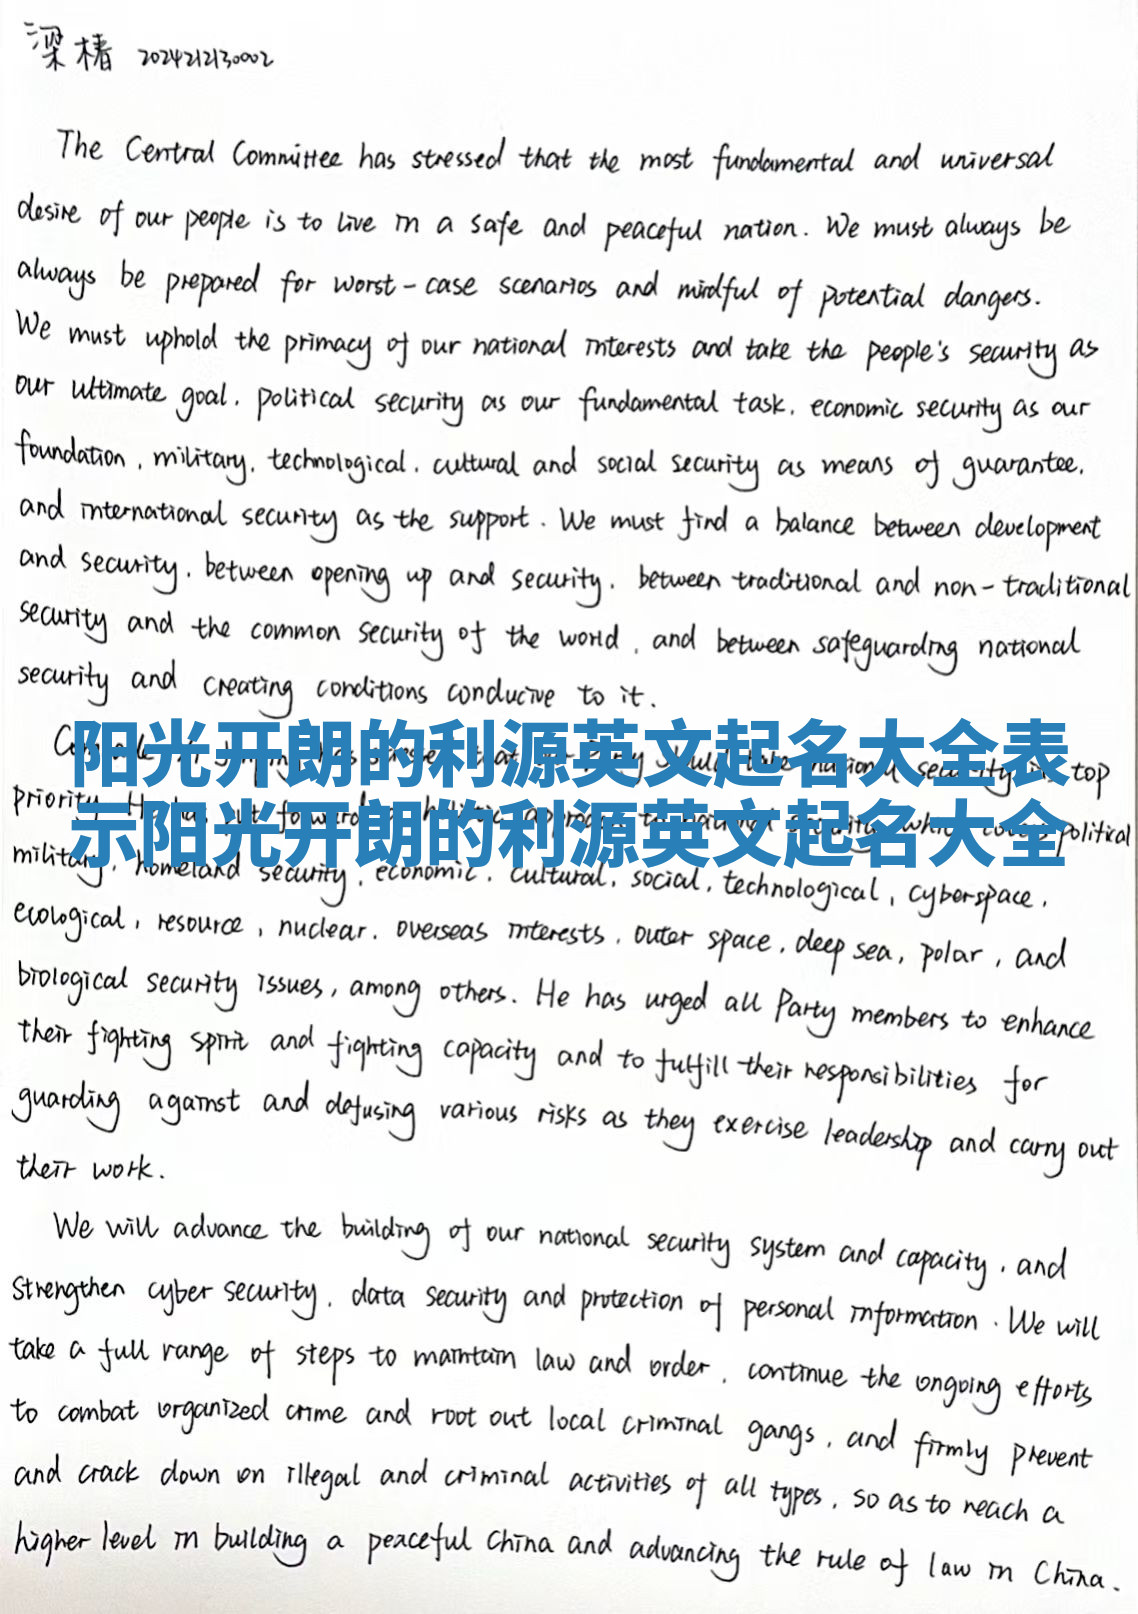 梁椿 2024212130002
The Central Committee has stressed that the most fundamental and universal
desire of our people is to live in a safe and peaceful nation. We must always be
always be prepared for worst-case scenarios and mindful of potential dangers.
We must uphold the primacy of our national interests and take the people's security as
our ultimate goal, political security as our fundamental task, economic security as our
foundation, military, technological, cultural and social security as means of guarantee,
and international security as the support. We must find a balance between development
and security, between opening up and security, between traditional and non-traditional
security and the common security of the world, and between safeguarding national
security and creating conditions conducive to it.
阳光开朗的利源英文起名大全表
top
priority
示阳光开朗的利源英文起名大全
political
military, homeland security, economic, cultural, social, technological, cyberspace,
ecological, resource, nuclear, overseas interests, outer space, deep sea, polar, and
biological security issues, among others. He has urged all Party members to enhance
their fighting spirit and fighting capacity and to fulfill their responsibilities for
guarding against and defusing various risks as they exercise leadership and carry out
their work.
We will advance the building of our national security system and capacity, and
strengthen cyber security, data security and protection of personal information. We will
take a full range of steps to maintain law and order, continue the ongoing efforts
to combat organized crime and root out local criminal gangs, and firmly prevent
and crack down on illegal and criminal activities of all types, so as to reach a
higher level in building a peaceful China and advancing the rule of law in China.